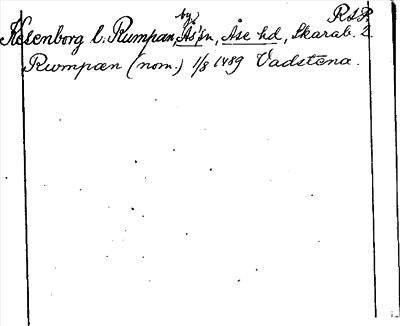 RSR
by
Kesenborg l. Rumpan, Ås sn, Åse hd, Skarab. l.
Rumpæn (nom.) 1/8 1489 Vadstena.